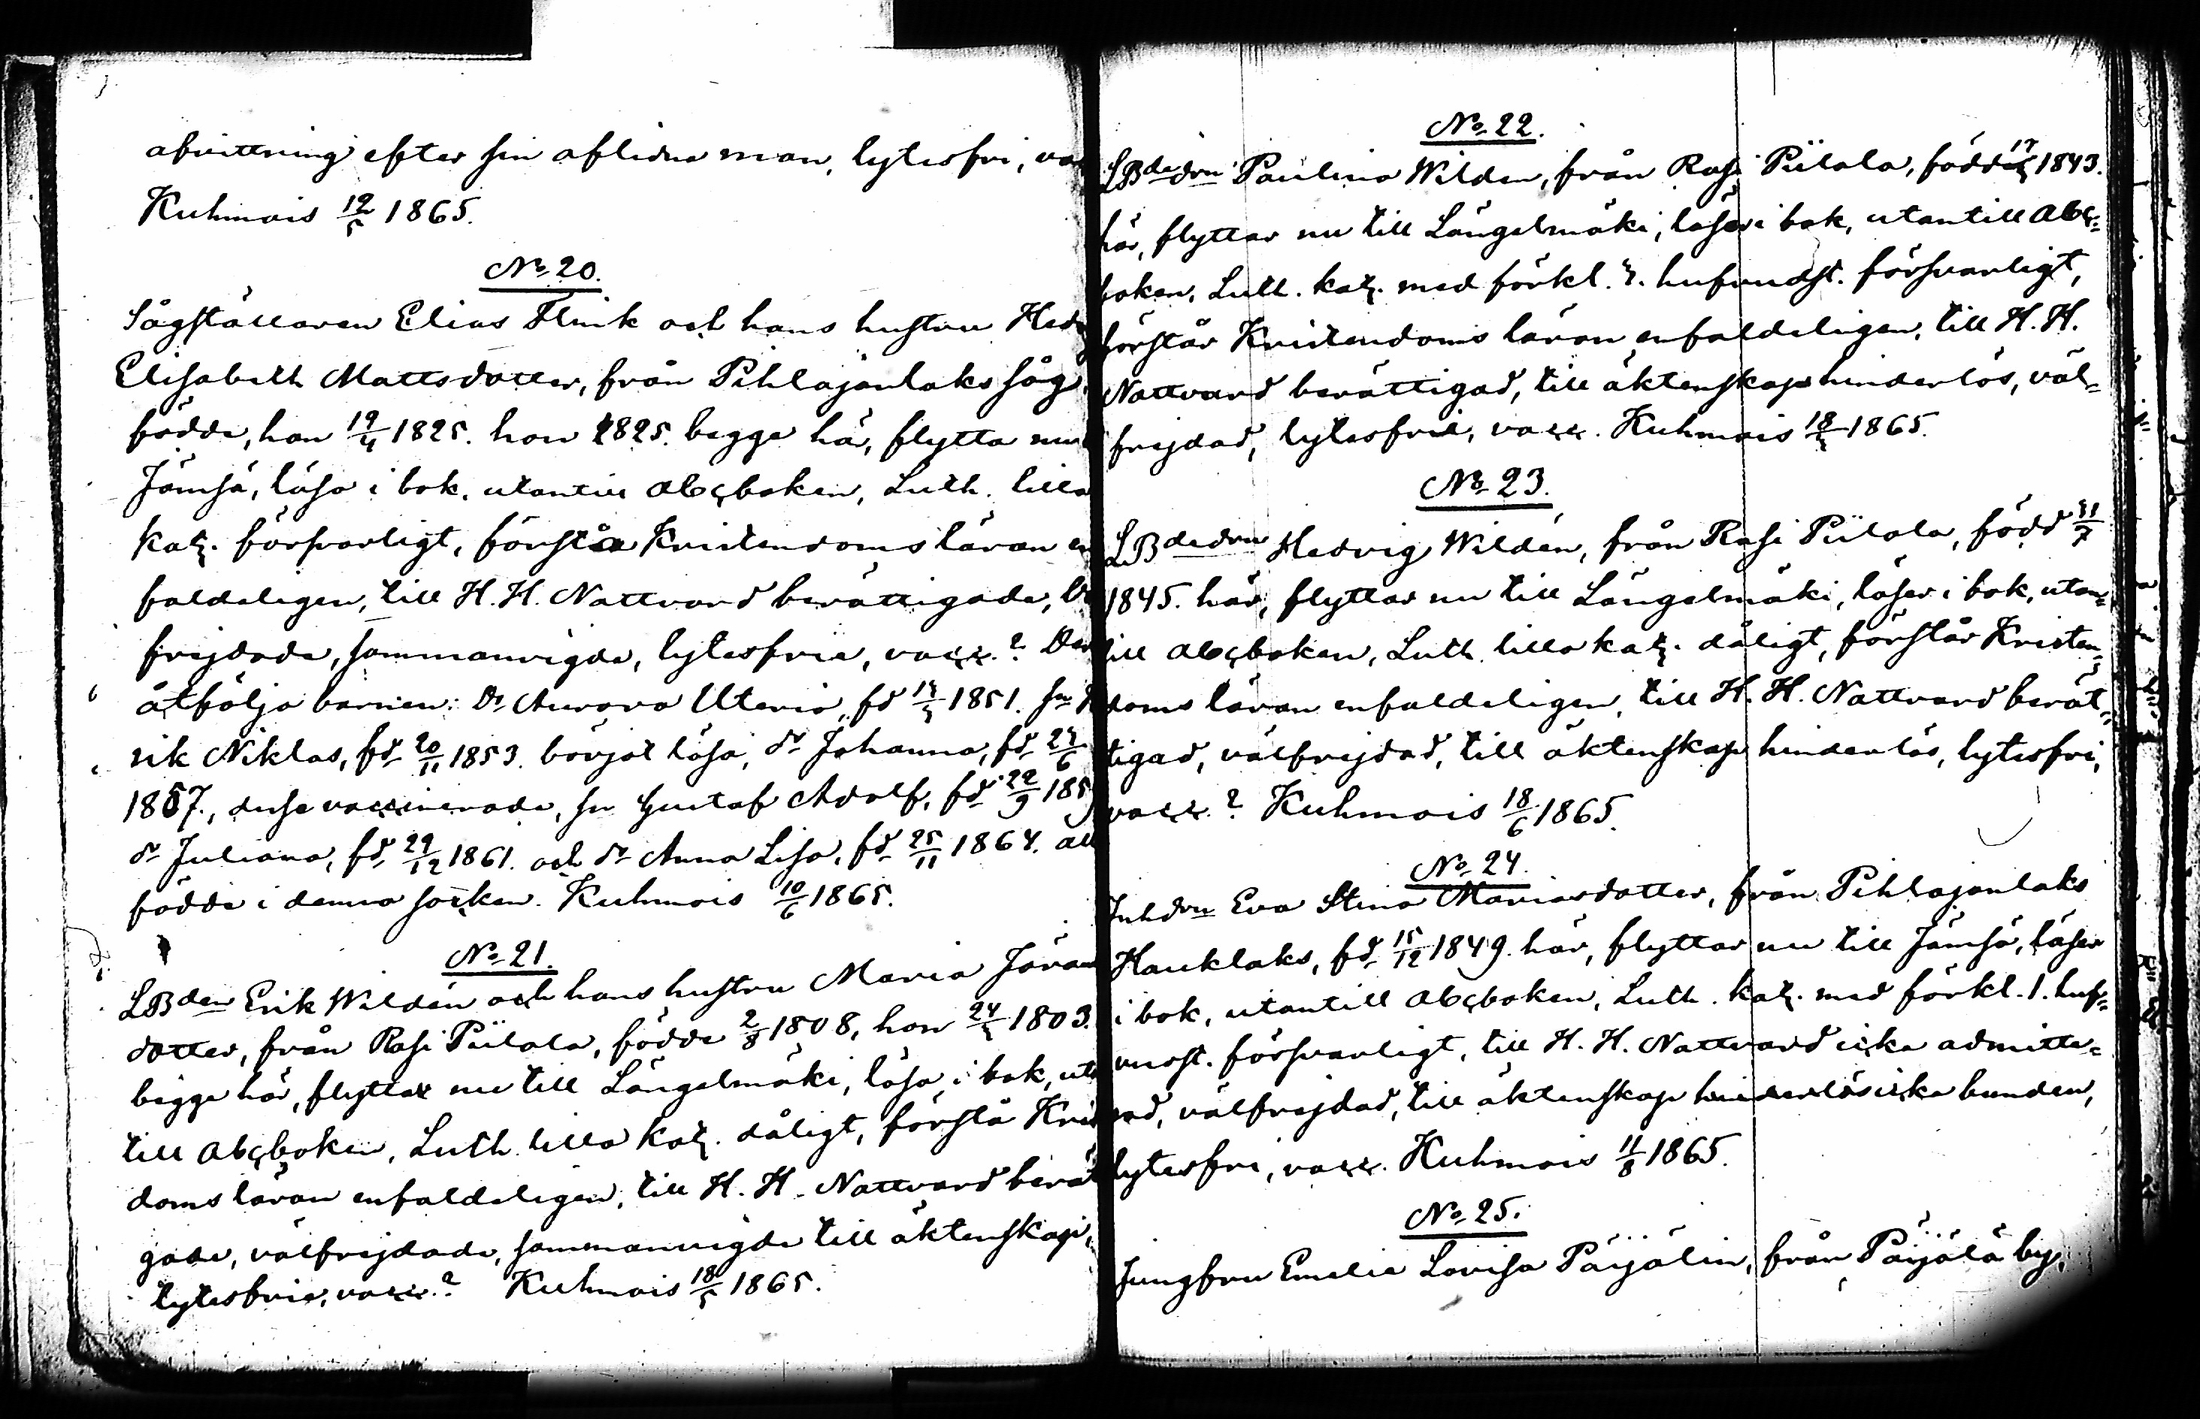 afvittning efter sin aflidna man, lytesfri, va
Kuhmois 12/5 1865.
No 20.
Sågställaren Elias Flink och hans hustru Hedv
Elisabeth Mattsdotter, från Pihlajanlaks såg,
födde, han 19/4 1825. hon 1825. begge här, flytta nu
Jämsä, läsa i bok, utantill abcboken, Luth. lilla
kat. försvarligt, förstå Kristendoms läran en
faldeligen, till H. H. Nattvard berättigade,
frejdade, sammanvigde, lytesfrie, vacc.? Dem
åtfölja barnen: Dr Aurora Uterio, fd 1851. Sn
rik Niklas, fd 20/11 1853. börjat läsa, dr Johanna, fd 24/6
1857., desse vaccinerade, sn Gustaf Adolf, fd 22/9 185
dr Juliana, fd 29/12 1861. och dr Anna Lisa, fd 25/11 1864. all
födde i denna socken. Kuhmois 10/6 1865.
No 21.
LBden Erik Wildén och hans hustru Maria Jöran
dotter, från Rasi Piilola, födde 2/8 1808, hon 24/5 1803.
begge här, flytta nu till Längelmäki, läsa i bok, utan
till abcboken, Luth. lilla kat. dåligt, förstå Kris
doms läran enfaldeligen, till H. H. Nattvard berät
gade, välfrejdade, sammanvigde till äktenskap,
lytesfrie, vacc.? Kuhmois 18/5 1865.
No 22.
LBdedrn Paulina Wilden, från Rasi Piilola, född 17 1843.
här, flyttar nu till Längelmäki, läser i bok, utantill abc-
boken, Luth. kat. med förkl. hufvudst. försvarligt,
förstår Kristendoms läran enfaldeligen, till H. H.
Nattvard berättigad, till äktenskap hinderlös, väl-
frejdad, lytesfri, vacc. Kuhmois 18/5 1865.
No 23.
LBdedrn Hedvig Wildén, från Rasi Piilola, född 31/7
1845. här, flyttar nu till Längelmäki, läser i bok, utan-
till abcboken, Luth. lilla kat. dåligt, förstår Kristen-
doms läran enfaldeligen, till H. H. Nattvard berät-
tigad, välfrejdad, till äktenskap hinderlös, lytesfri,
vacc.? Kuhmois 18/6 1865.
No 24.
Inhdrn Eva Stina Mariasdotter, från Pihlajanlaks
Hauklaks, fd 15/12 1849. här, flyttar nu till Jämsä, läser
i bok, utantill abcboken, Luth. kat. med förkl. 1. huf-
vudst. försvarligt, till H. H. Nattvard icke admitte-
rad, välfrejdad, till äktenskap hinderlös icke bunden,
lytesfri, vacc. Kuhmois 11/8 1865.
No 25.
Jungfrun Emelie Lovisa Päijälin, från Päijälä by,